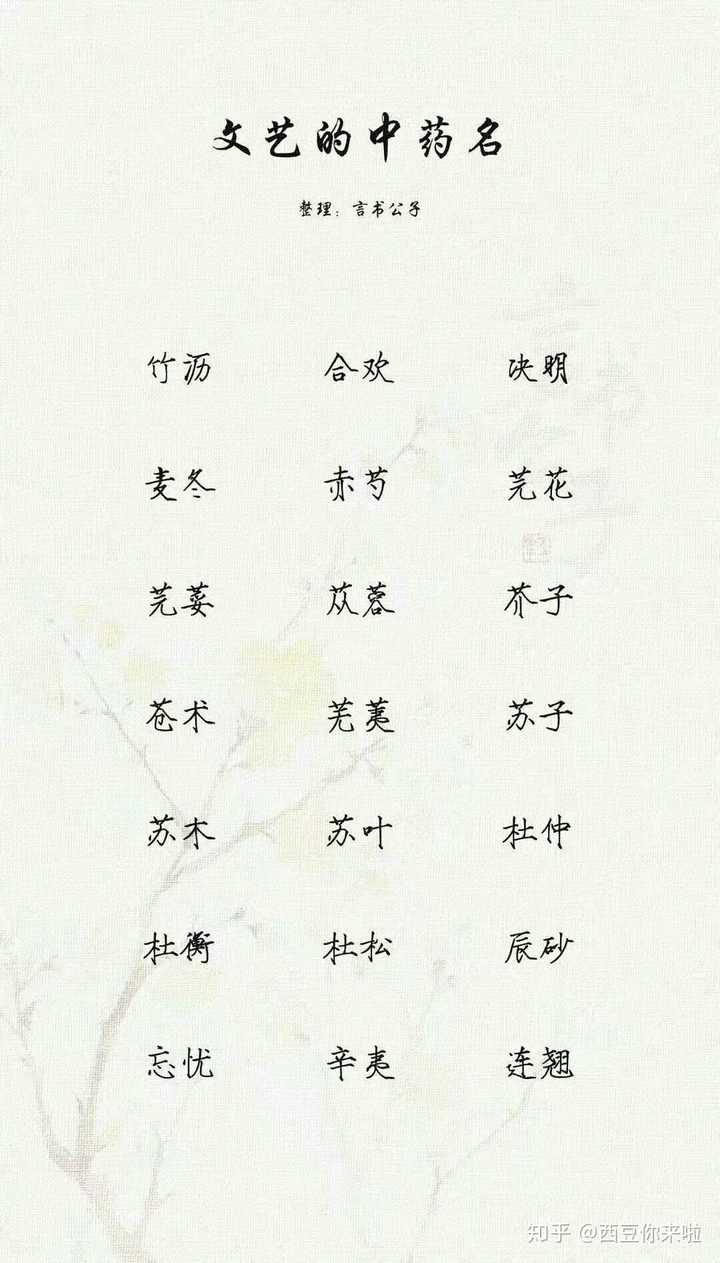 文艺的中药名
整理：言书公子
竹沥 合欢 决明
麦冬 赤芍 芫花
芫荽 苁蓉 芥子
苍术 芜荑 苏子
苏木 苏叶 杜仲
杜衡 杜松 辰砂
忘忧 辛夷 连翘
言书公子
知乎 @西豆你来啦